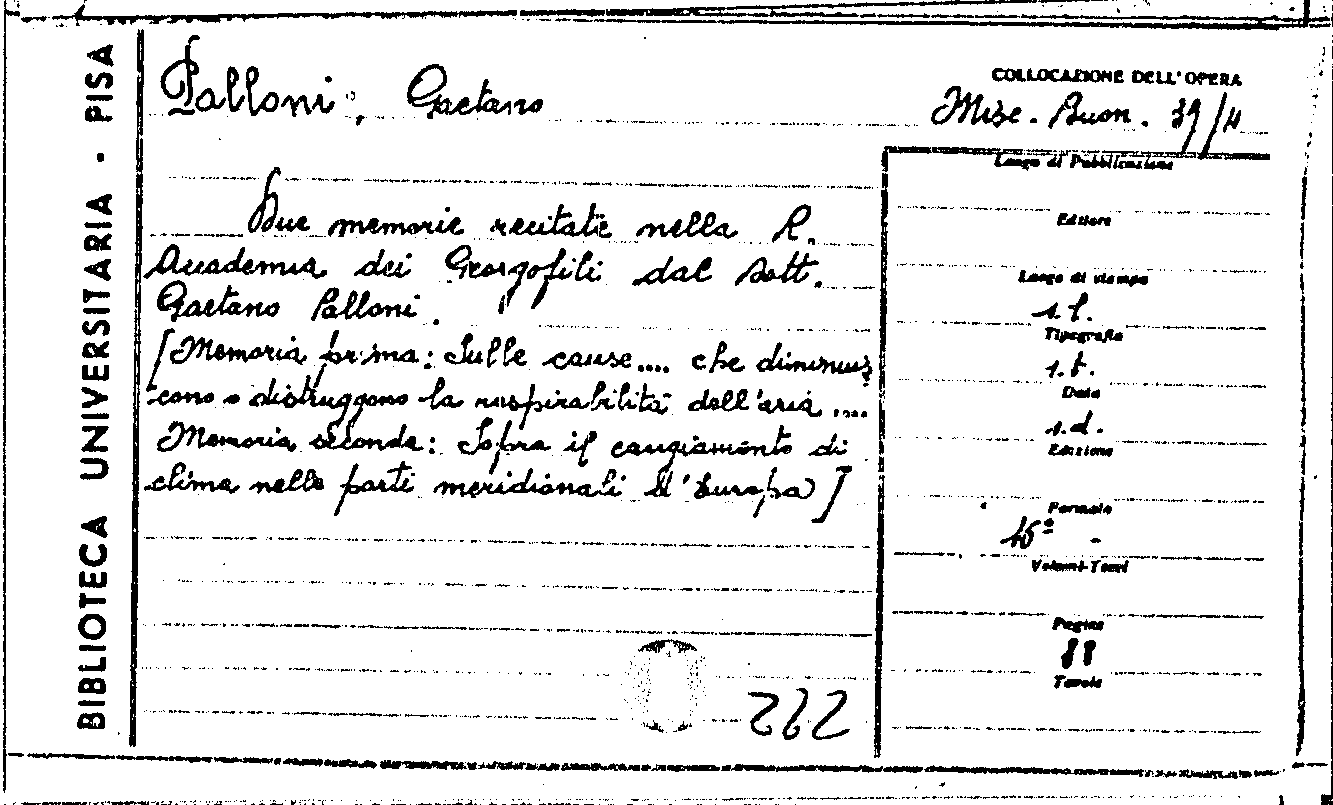 BIBLIOTECA UNIVERSITARIA - PISA
Palloni, Gaetano
COLLOCAZIONE DELL'OPERA
Misc. Buon. 39/4
Due memorie recitate nella R.
Accademia dei Georgofili dal Dott.
Gaetano Palloni.
[Memoria prima: Sulle cause.... che diminuis
cono o distruggono la respirabilità dell'aria ....
Memoria seconda: Sopra il cangiamento di
clima nelle parti meridionali d'Europa]
Luogo di Pubblicazione
Editore
Luogo di stampa
s.l.
Tipografia
s.t.
Data
s.d.
Edizione
Formato
16º
Volumi-Tomi
Pagine
88
Tavole
222